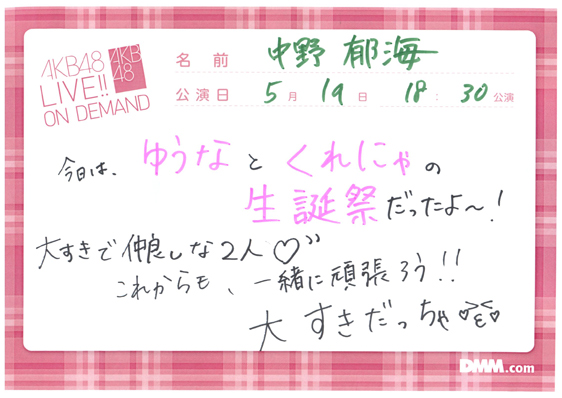 AKB48
LIVE!!
ON DEMAND
AKB
48
名前 中野 郁海
公演日 5月 19日 18:30公演
今日は、ゆうなとくれにゃの
生誕祭だったよ〜!
大すきで仲良しな2人♡”
これからも、一緒に頑張ろう!!
大すきだっちゃ
DMM.com